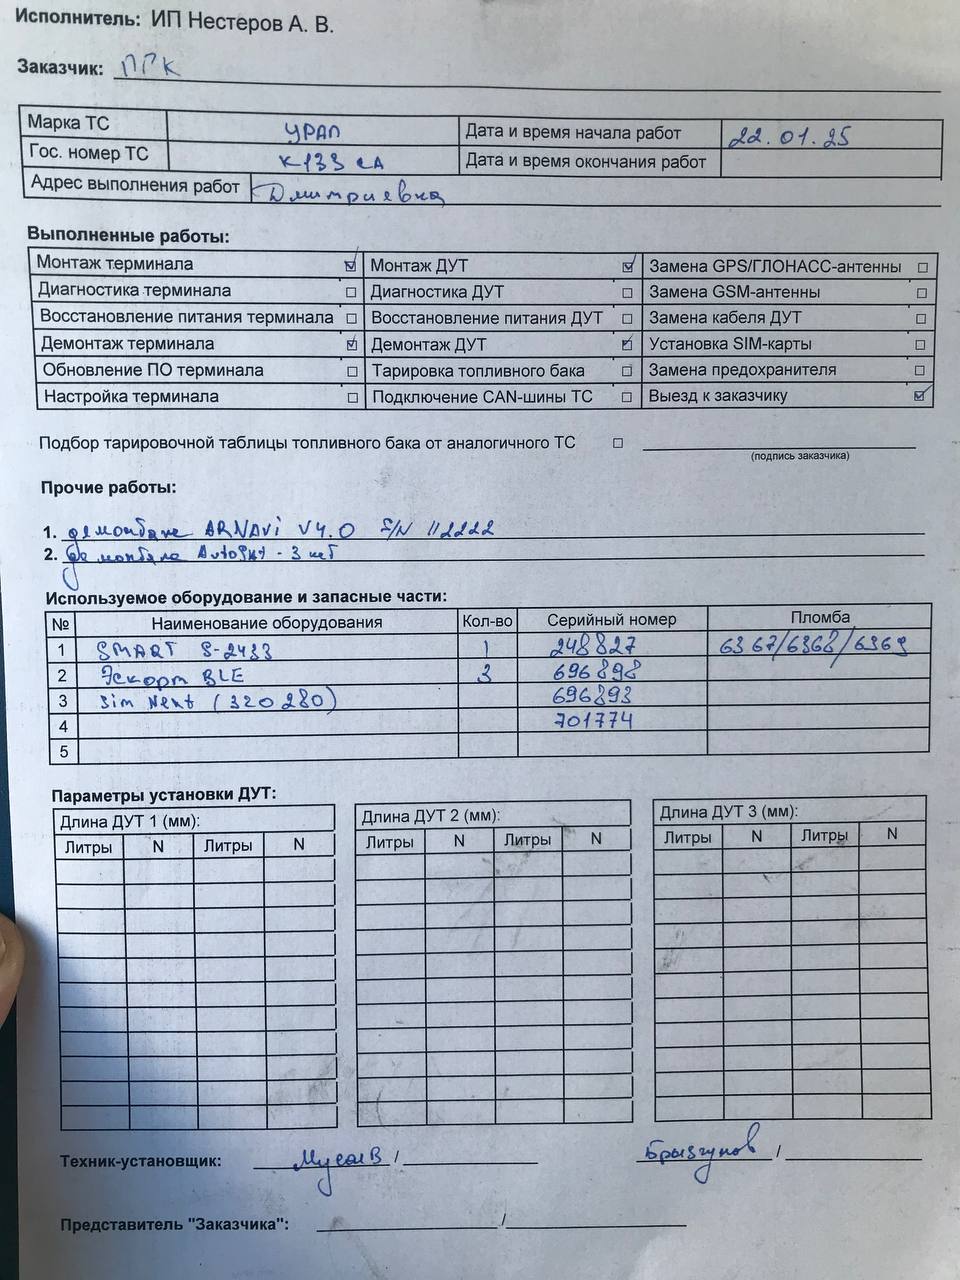 Исполнитель: ИП Нестеров А. В.
Заказчик: ПГК
Марка ТС УРАЛ Дата и время начала работ 22.01.25
Гос. номер ТС К133 СА Дата и время окончания работ
Адрес выполнения работ Дмитриевка
Выполненные работы:
Монтаж терминала ☑ Монтаж ДУТ ☑ Замена GPS/ГЛОНАСС-антенны ☐
Диагностика терминала ☐ Диагностика ДУТ ☐ Замена GSM-антенны ☐
Восстановление питания терминала ☐ Восстановление питания ДУТ ☐ Замена кабеля ДУТ ☐
Демонтаж терминала ☑ Демонтаж ДУТ ☑ Установка SIM-карты ☐
Обновление ПО терминала ☐ Тарировка топливного бака ☐ Замена предохранителя ☐
Настройка терминала ☐ Подключение CAN-шины ТС ☐ Выезд к заказчику ☑
Подбор тарировочной таблицы топливного бака от аналогичного ТС ☐
(подпись заказчика)
Прочие работы:
1. демонтаж ARNAVI V4.0 S/N 112222
2. демонтаж - 3 шт
Используемое оборудование и запасные части:
№ Наименование оборудования Кол-во Серийный номер Пломба
1 SMART S-2433 1 248827 6367/6368/6369
2 Эскорт BLE 3 696898
3 Sim Next (320280) 696893
4 701774
5
Параметры установки ДУТ:
Длина ДУТ 1 (мм): Длина ДУТ 2 (мм): Длина ДУТ 3 (мм):
Литры N Литры N Литры N Литры N Литры N Литры N
Техник-установщик: / Брызгунов /
Представитель "Заказчика": /